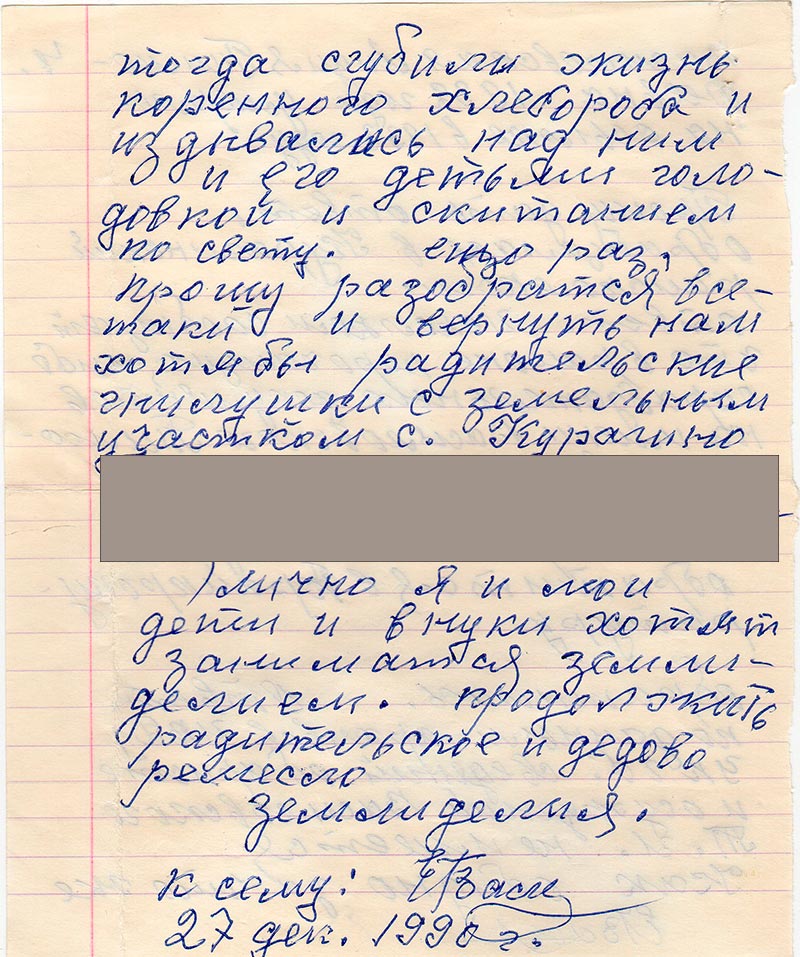 тогда сгубили жизнь
коренного хлебороба и
издывались над ним
и его детьями голо-
довкой и скитанием
по свету. ещо раз,
прошу разобратся все-
таки и вернуть нам
хотябы радительские
гнилушки с земельным
участком с. Курагино
) лично я и мои
дети и внуки хотят
заниматся земли-
делием. продолжить
радительское и дедово
ремесло
землиделия.
к сему:
27 дек. 1990 г.